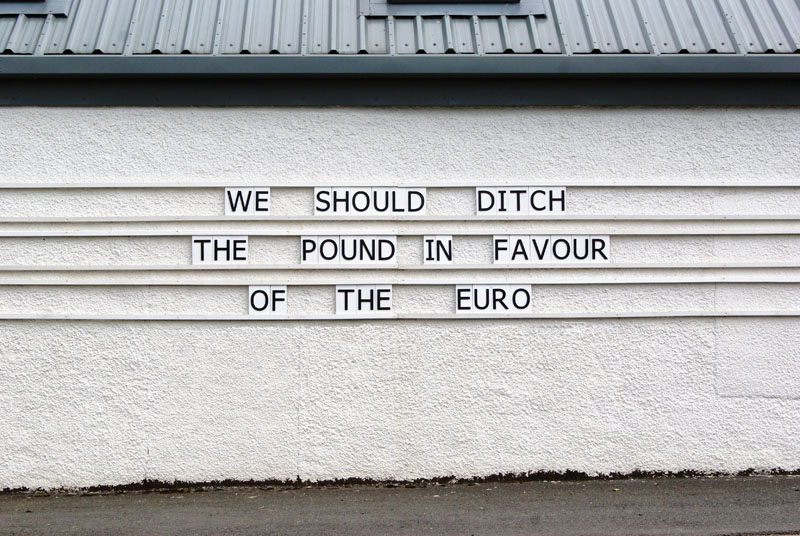 WE SHOULD DITCH
THE POUND IN FAVOUR
OF THE EURO